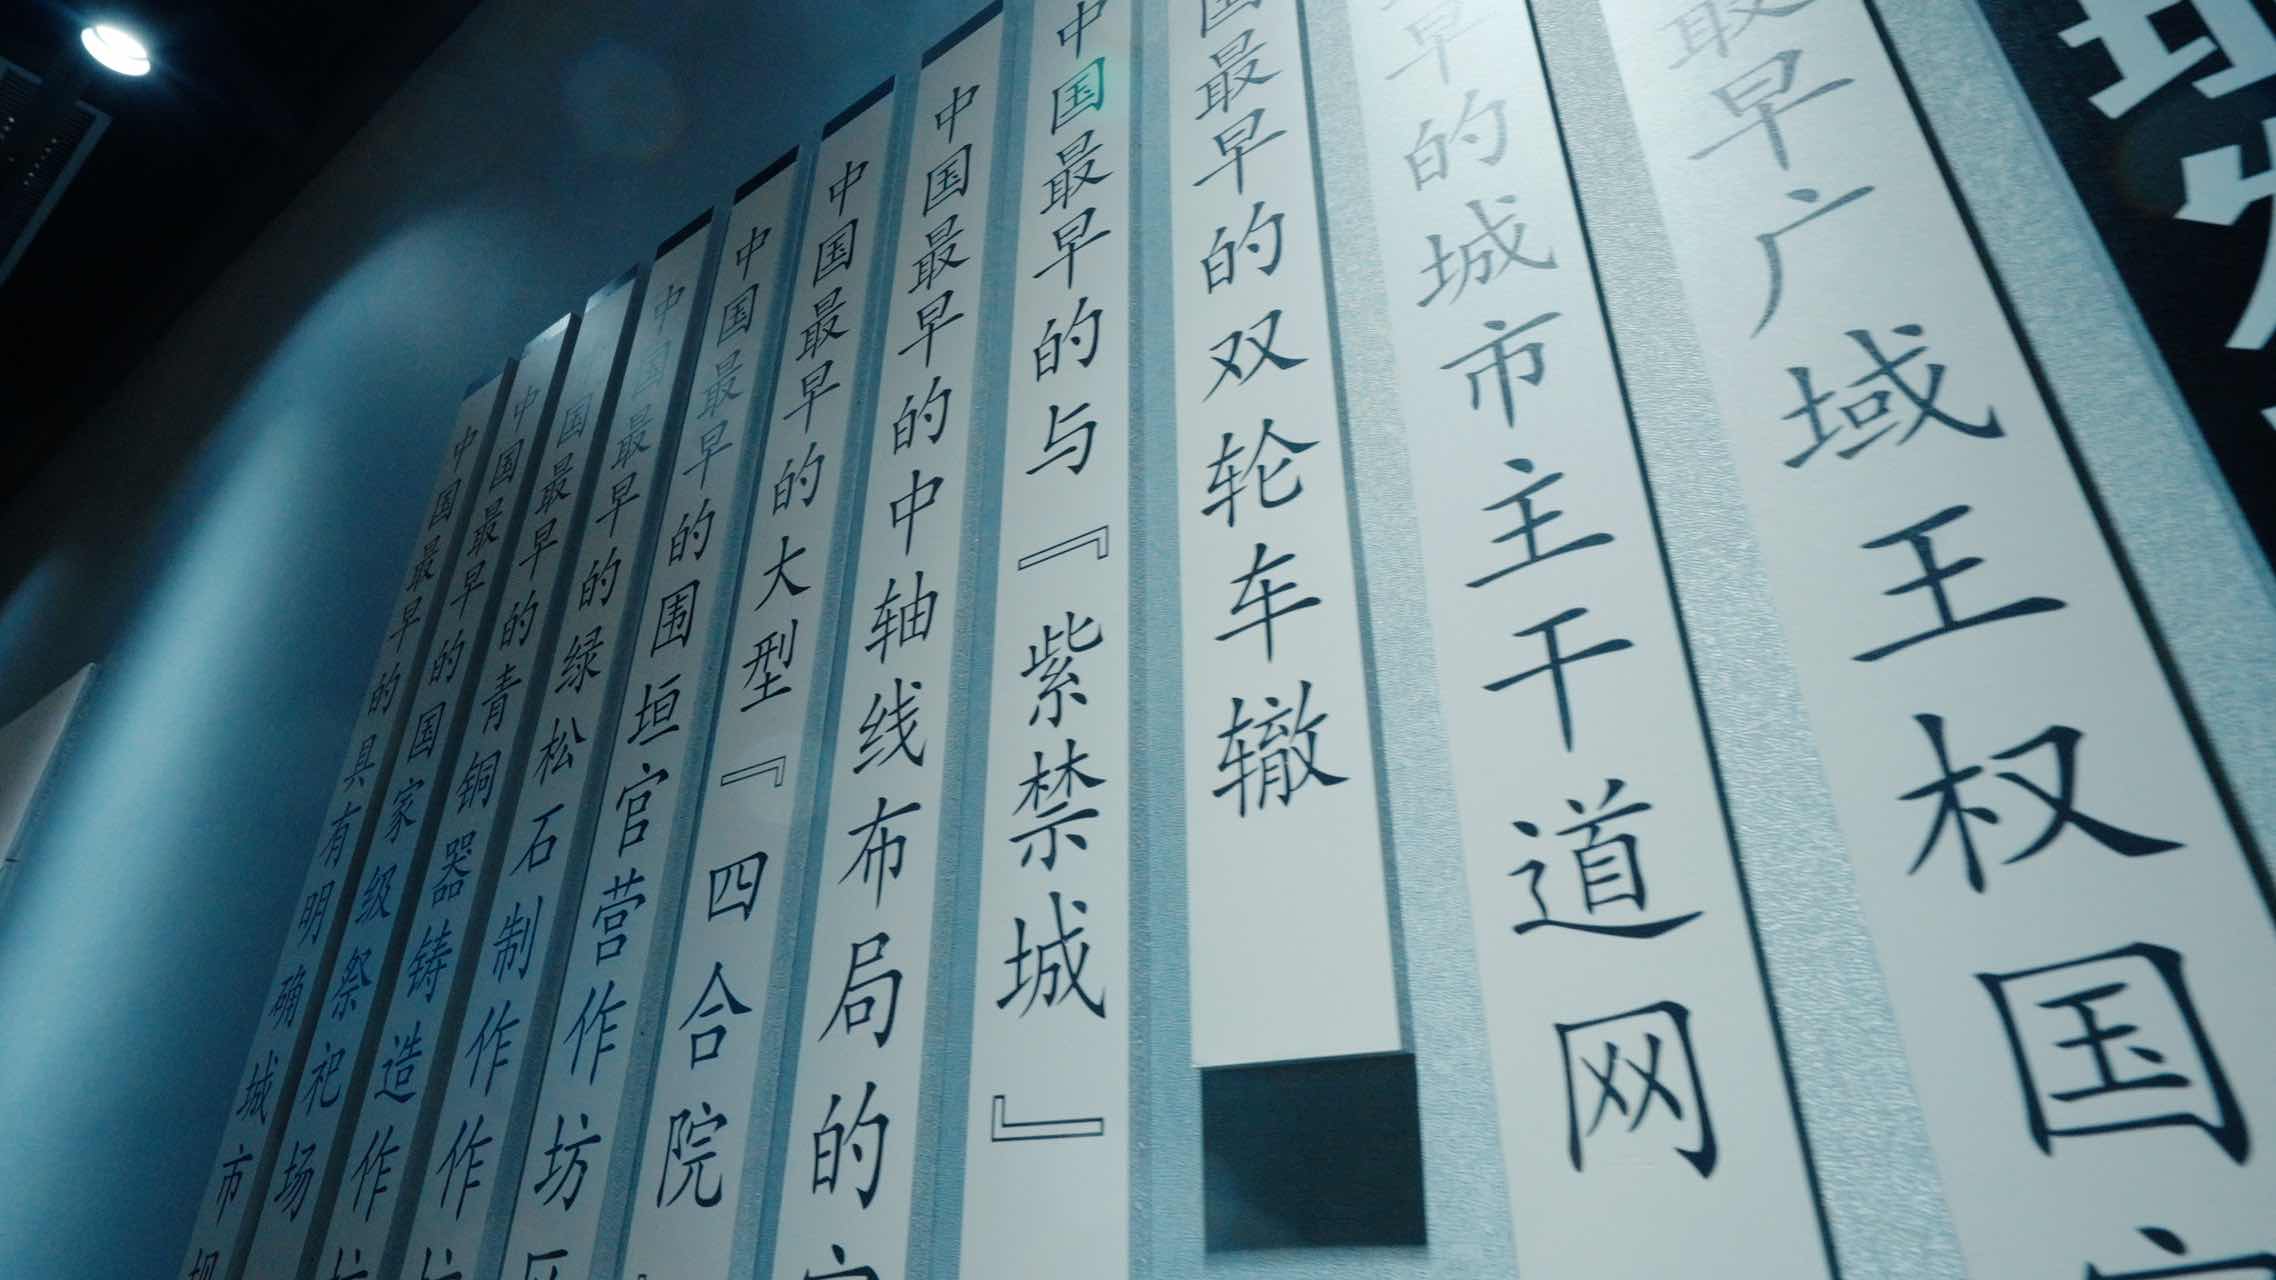 最早广域王权国
早的城市主干道网
国最早的双轮车辙
中国最早的与『紫禁城』
中国最早的中轴线布局的
中国最早的大型『四合院
中国最早的围垣官营作坊区
中国最早的绿松石制作作坊
国最早的青铜器铸造作坊
中国最早的国家级祭祀场
中国最早的具有明确城市规